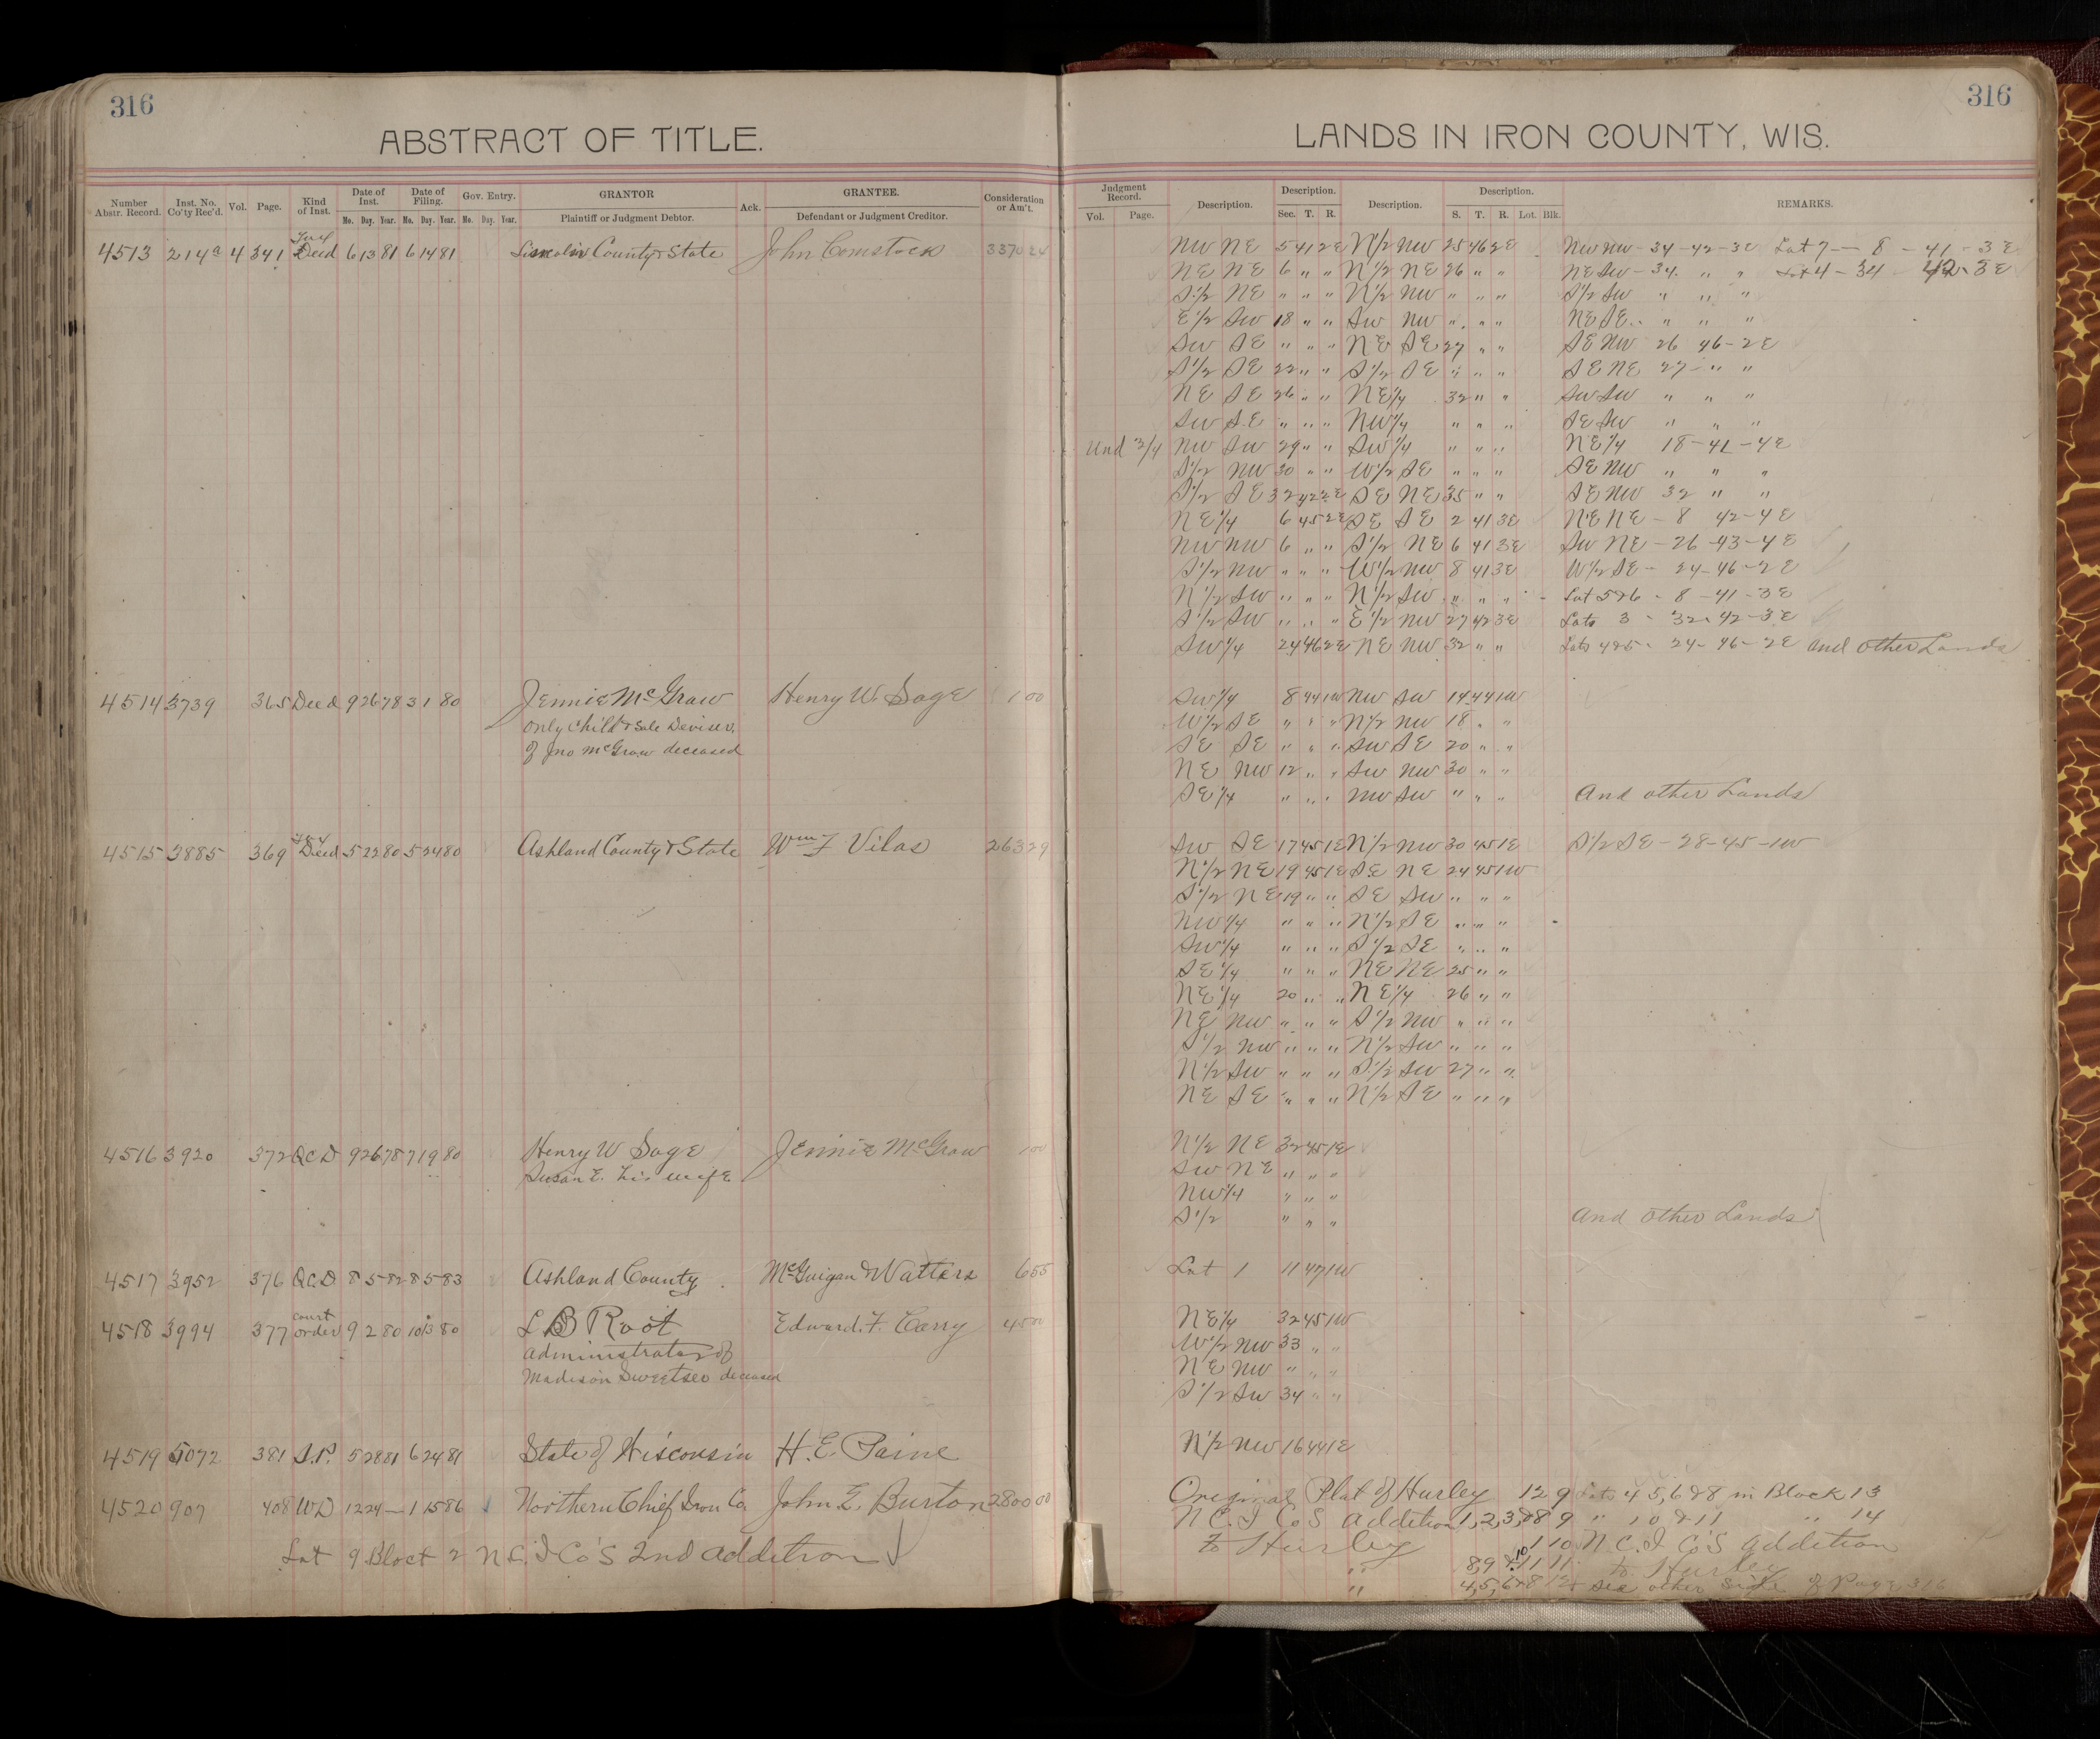 316
316
ABSTRACT OF TITLE.
LANDS IN IRON COUNTY, WIS.
Number Abstr. Record. Inst. No. Co'ty Rec'd. Vol. Page. Kind of Inst. Date of Inst. Date of Filing. Gov. Entry. GRANTOR Ack. GRANTEE. Consideration or Am't.
Mo. Day. Year. Mo. Day. Year. Mo. Day. Year. Plaintiff or Judgment Debtor. Defendant or Judgment Creditor.
Judgment Record. Description. Description. Description. Description. REMARKS.
Vol. Page. Sec. T. R. S. T. R. Lot. Blk.
4513 214a 4 341 Tax Deed 6 13 81 6 14 81 Lincoln County & State John Comstock 3370 24
NW NE 5 41 2E N1/2 NW 25 46 2E NW NW - 34 - 42 - 3E Lot 7 - 8 - 41 - 3E
NE NE 6 " " N1/2 NE 26 " " NE SW - 34 " " Lot 4 - 34 - 42 - 3E
S1/2 NE " " " N1/2 NW " " " S1/2 SW " " "
E1/2 SW 18 " " SW NW " " " NE SE " " "
SW SE " " " NE SE 27 " " SE NW 26 46 - 2E
S1/2 SE 22 " " S1/2 SE " " " SE NE 27 - " "
NE SE 26 " " NE1/4 32 " " SW SW " " "
SW SE " " " NW1/4 " " " SE SW " " "
Und 3/4 NW SW 29 " " SW1/4 " " " NE1/4 18 - 41 - 4E
S1/2 NW 30 " " W1/2 SE " " " SE NW " " "
S1/2 SE 32 42 2E SE NE 35 " " SE NW 32 " "
NE1/4 6 45 2E SE SE 2 41 3E NE NE - 8 42 - 4E
NW NW 6 " " S1/2 NE 6 41 3E SW NE - 26 - 43 - 4E
S1/2 NW " " " W1/2 NW 8 41 3E W1/2 SE - 24 - 46 - 2E
N1/2 SW " " " N1/2 SW " " " Lot 5 & 6 - 8 - 41 - 3E
S1/2 SW " " " E1/2 NW 27 42 3E Lots 3 - 32 - 42 - 3E
SW1/4 24 46 2E NE NW 32 " " Lots 4 & 5 - 24 - 46 - 2E and other Lands
4514 3739 365 Deed 9 26 78 3 1 80 Jennie McGraw Henry W. Sage 1 00
only child & sole Devisee
of Jno McGraw deceased
SW1/4 8 44 1W NW SW 14 44 1W
W1/2 SE " " " N1/2 NW 18 " "
SE SE " " " SW SE 20 " "
NE NW 12 " " SW NW 30 " "
SE1/4 " " " NW SW " " " And other Lands
4515 3885 369 Tax Deed 5 22 80 5 24 80 Ashland County & State Wm F Vilas 263 29
SW SE 17 45 1E N1/2 NW 30 45 1E S1/2 SE - 28 - 45 - 1W
N1/2 NE 19 45 1E SE NE 24 45 1W
S1/2 NE 19 " " SE SW " " "
NW1/4 " " " N1/2 SE " " "
SW1/4 " " " S1/2 SE " " "
SE1/4 " " " NE NE 25 " "
NE1/4 20 " " NE1/4 26 " "
NE NW " " " S1/2 NW " " "
S1/2 NW " " " N1/2 SW " " "
N1/2 SW " " " S1/2 SW 27 " "
NE SE " " " N1/2 SE " " "
4516 3920 372 QCD 9 26 78 7 19 80 Henry W Sage Jennie McGraw 1 00
Susan E. his wife
N1/2 NE 32 45 1E
SW NE " " "
NW1/4 " " "
S1/2 " " " and other Lands
4517 3952 376 QCD 8 5 82 8 5 83 Ashland County McGuigan & Watters 6 55
Lot 1 11 47 1W
4518 3994 377 court order 9 2 80 10 13 80 L B Root Edward. F. Carry
administrator of
Madison Sweetser deceased
NE1/4 32 45 1W
W1/2 NW 33 " "
NE NW " " "
S1/2 SW 34 " "
4519 5072 381 S.P. 5 28 81 6 24 81 State of Wisconsin H. E. Paine
N1/2 NW 16 44 1E
4520 907 408 WD 12 24 — 1 15 86 Northern Chief Iron Co John E. Burton 2800 00
Lot 9 Block 2 N.C.I Co'S 2nd addition
Original Plat of Hurley 12 9 Lots 4 5, 6 & 8 in Block 13
N.C.I Co'S addition 1, 2, 3, & 8 9 " 10 & 11 " 14
to Hurley 1 10 N.C.I Co'S addition
" 8, 9 10 & 11 11 to Hurley
" 4, 5, 6 & 8 12 see other side of Page 316